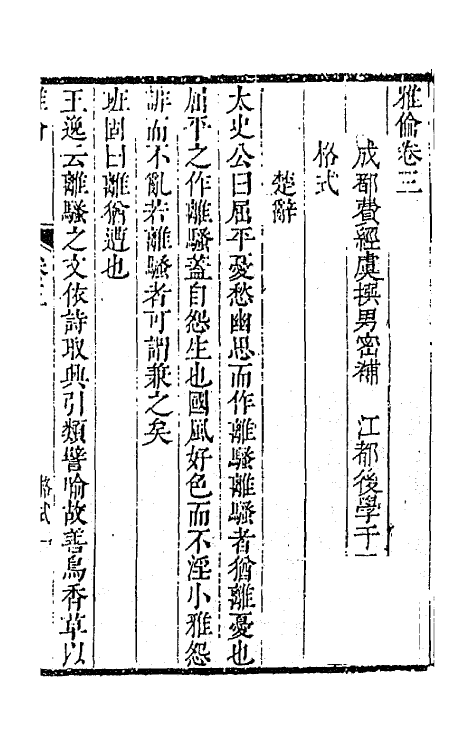 雅倫卷三
成都費經虞撰男密補　江都後學于
格式
楚辭
太史公曰屈平憂愁幽思而作離騷離騷者猶離憂也
屈平之作離騷蓋自怨生也國風好色而不淫小雅怨
誹而不亂若離騷者可謂兼之矣
班固曰離猶遭也
王逸云離騷之文依詩取興引類譬喻故善鳥香草以
卷三
格式一